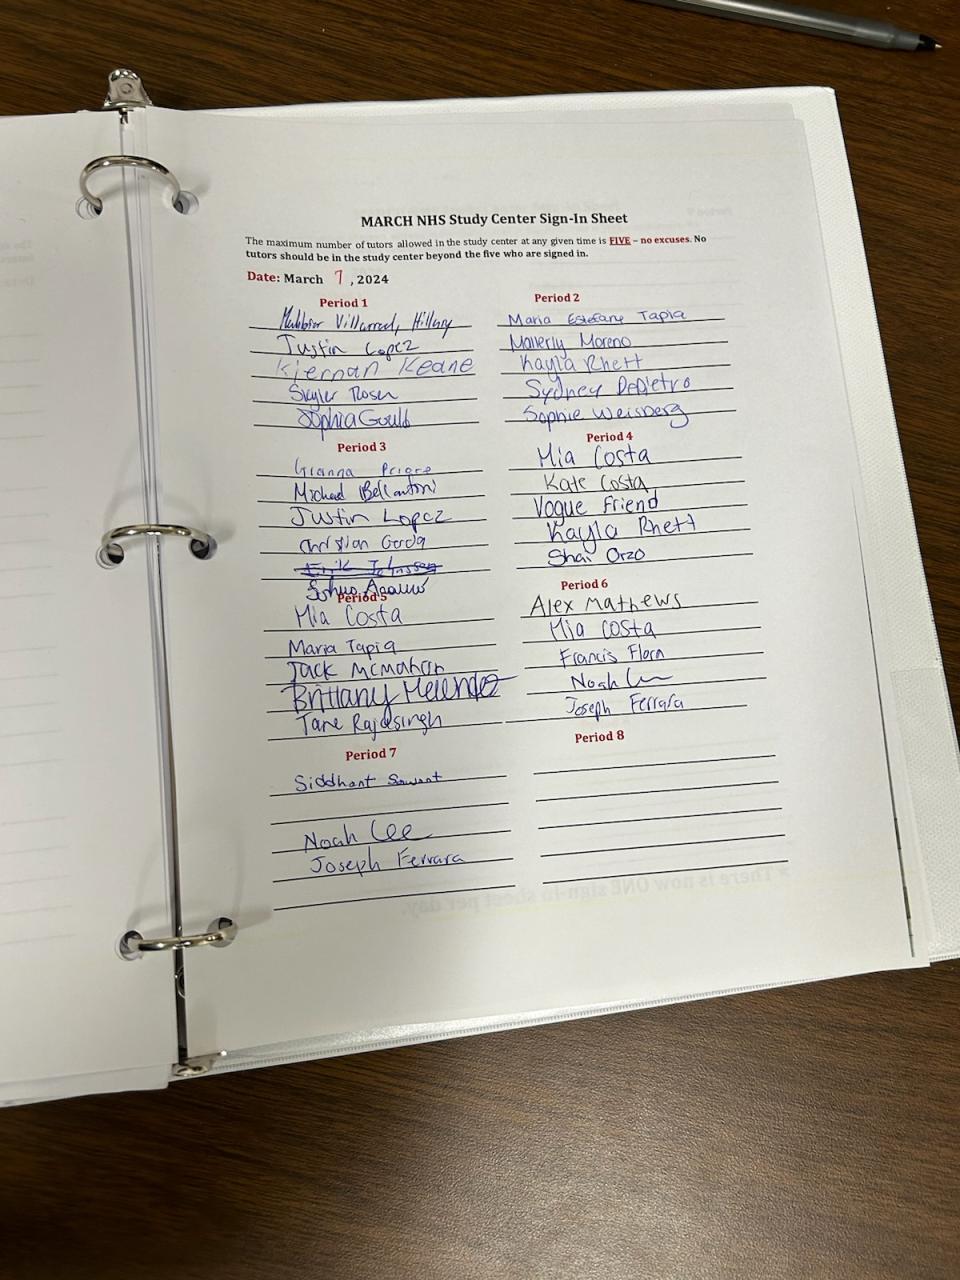 MARCH NHS Study Center Sign-In Sheet
The maximum number of tutors allowed in the study center at any given time is FIVE – no excuses. No
tutors should be in the study center beyond the five who are signed in.
Date: March 7, 2024
Period 1
Villarreal, Hillary
Justin Lopez
Kiernan Keane
Skyler Rosen
Sophia Gould
Period 2
Maria Estefany Tapia
Mallerly Moreno
Kayla Rhett
Sydney DePietro
Sophie Weisberg
Period 3
Gianna Priore
Michael Bellantoni
Justin Lopez
Christian Cerda
Period 4
Mia Costa
Kate Costa
Vogue Friend
Kayla Rhett
Shai Orzo
Period 5
Mia Costa
Maria Tapia
Jack McMahon
Brittany Melendez
Tane Rajasingh
Period 6
Alex Mathews
Mia Costa
Francis Flora
Noah Lee
Joseph Ferrara
Period 7
Siddhant Sawant
Noah Lee
Joseph Ferrara
Period 8
There is now ONE sign-in sheet per day.